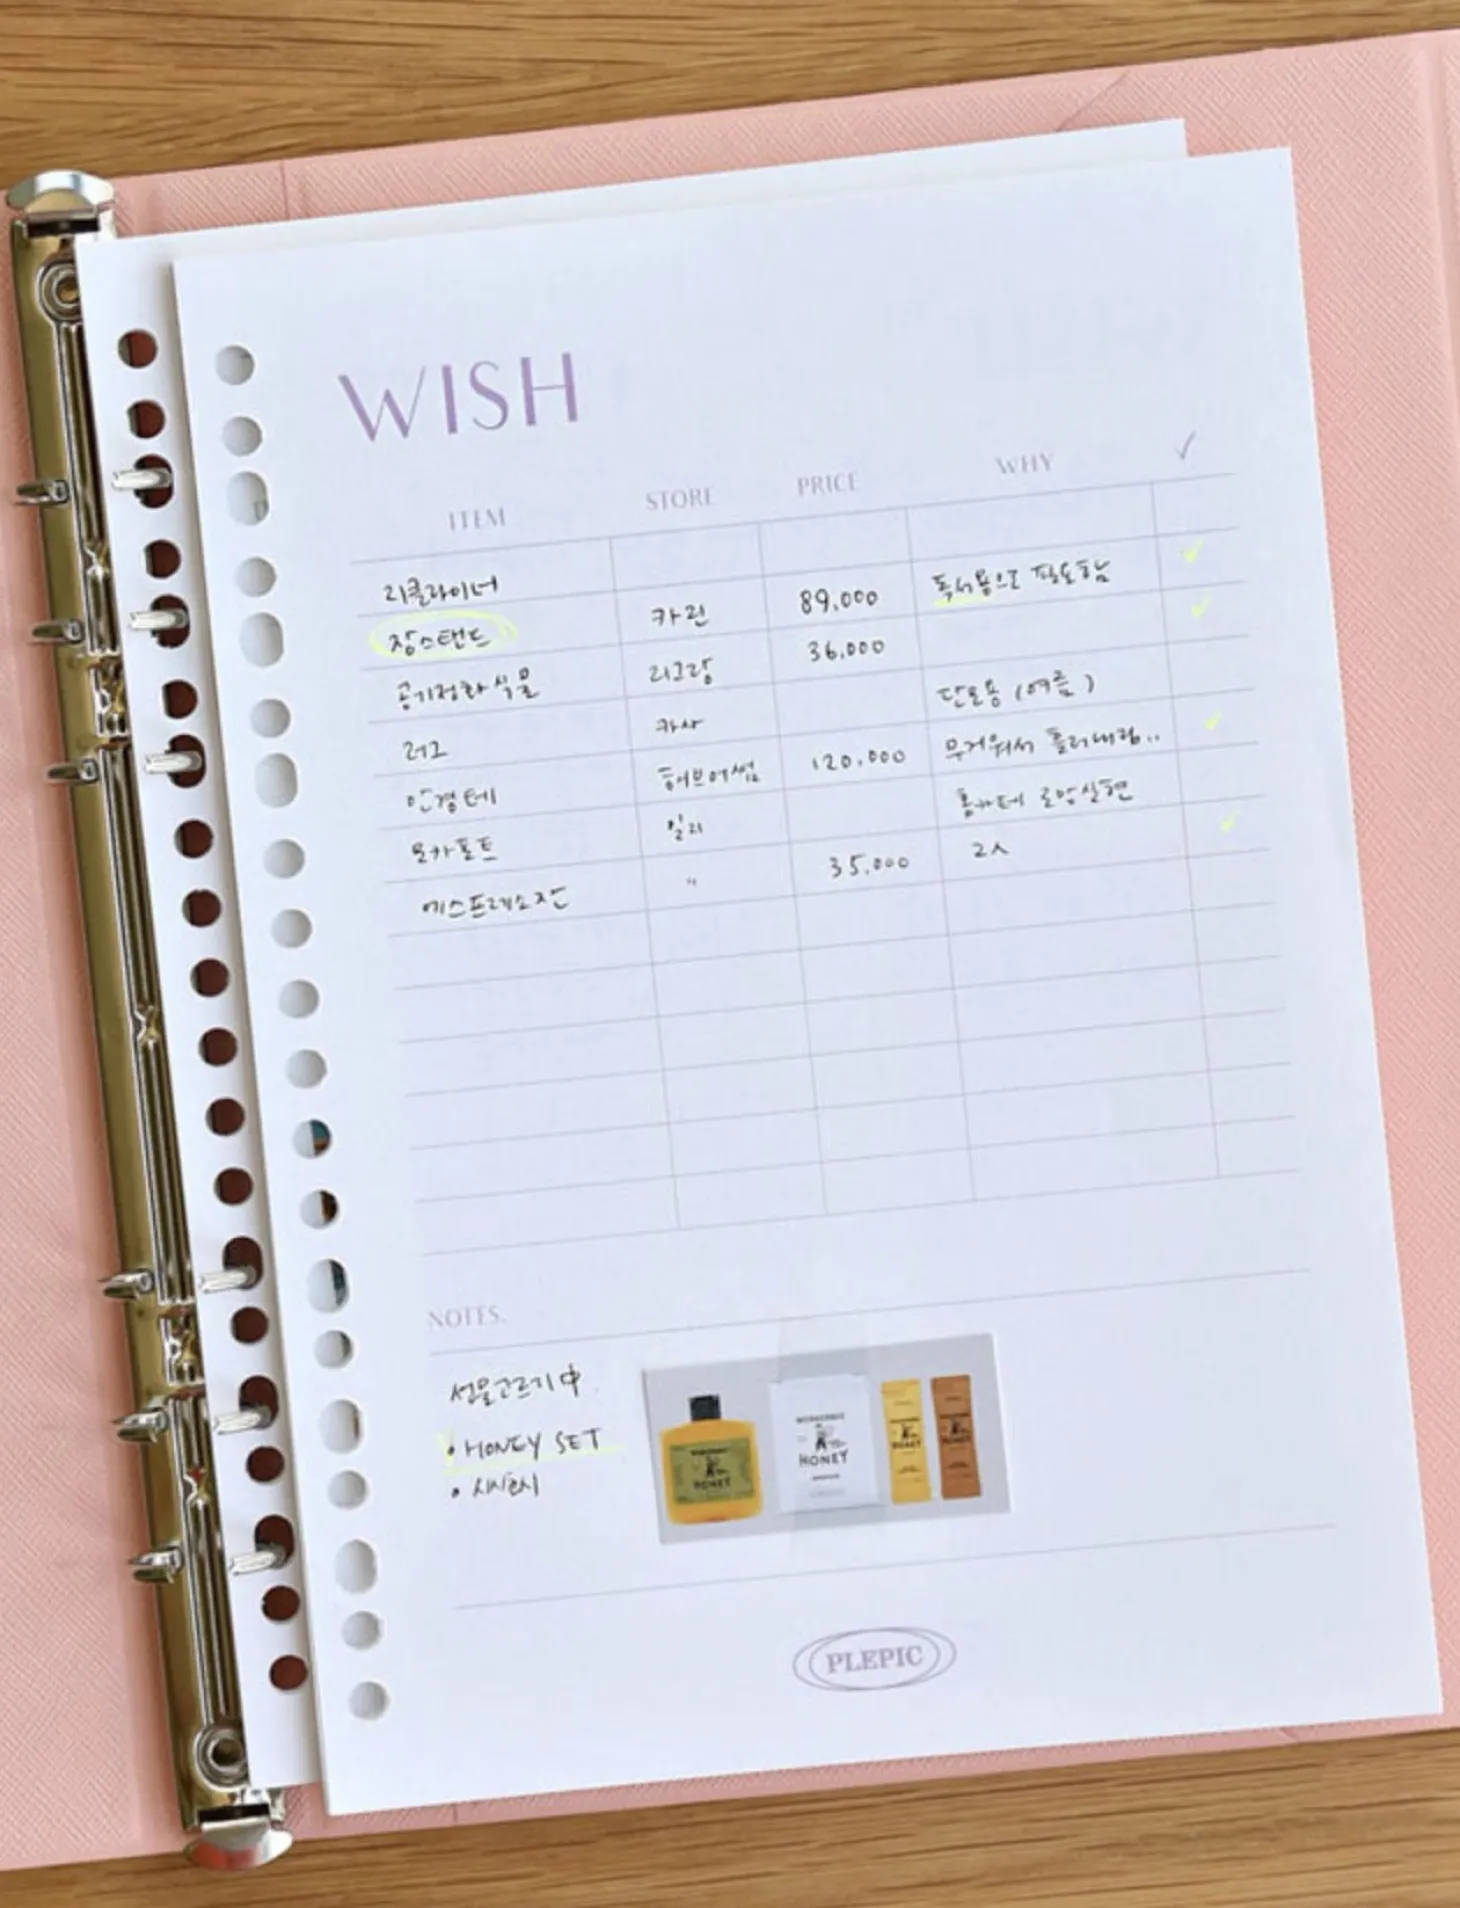 WISH
ITEM STORE PRICE WHY ✓
리클라이너
장스탠드 카린 89,000 독서용으로 필요함 ✓
공기정화식물 리그랑 36,000 ✓
러그 카사 단모용 (여름)
안경테 해브어썸 120,000 무거워서 흘러내림.. ✓
모카포트 일리 홈카페 로망실현
에스프레소잔 " 35,000 2人 ✓
NOTES.
선물고르기中
• HONEY SET
HONEY
HONEY
HONEY
HONEY
PLEPIC